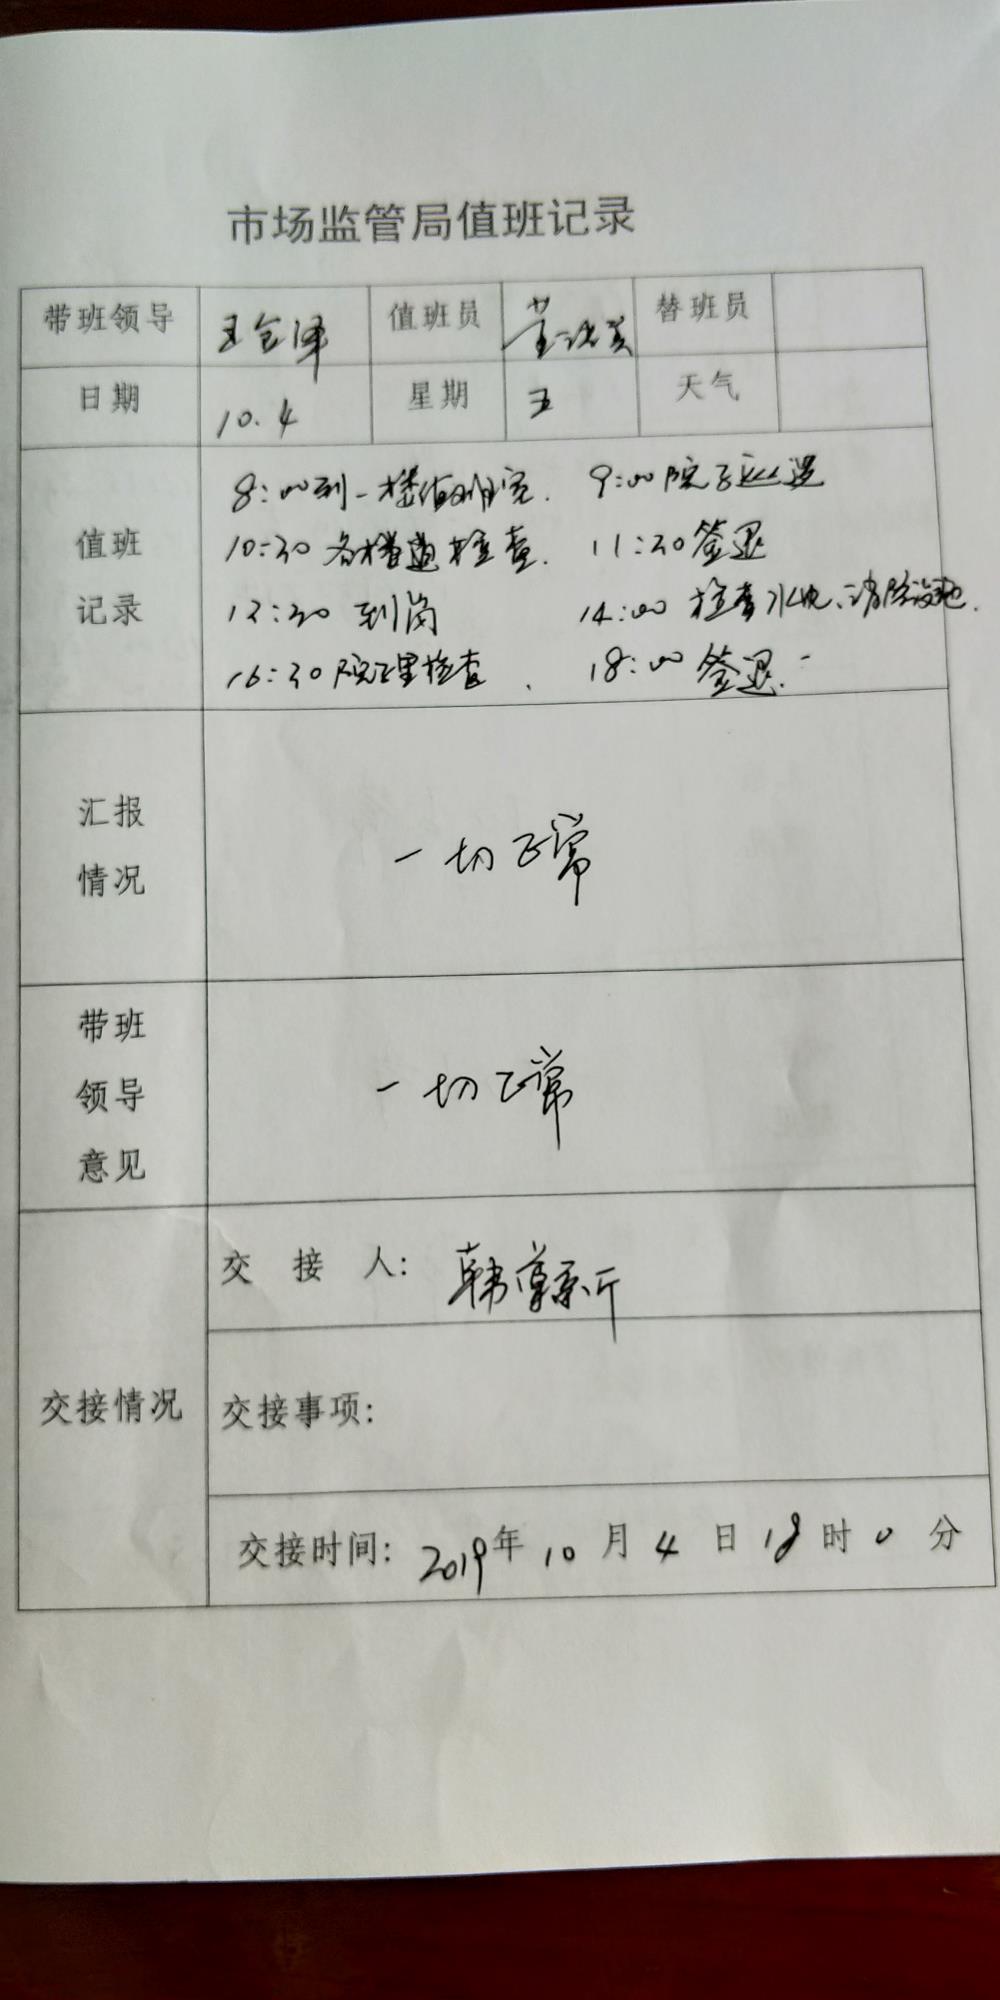 市场监管局值班记录
带班领导 王金泽 值班员 替班员
日期 10.4 星期 五 天气
值班
记录
8:00到一楼值班室. 9:00院子巡逻
10:30各楼道检查. 11:30签退
12:30到岗 14:00检查水电、消防设施.
16:30院里检查. 18:00签退.
汇报
情况
一切正常
带班
领导
意见
一切正常
交接情况
交接人: 韩
交接事项:
交接时间: 2019年10月4日18时0分